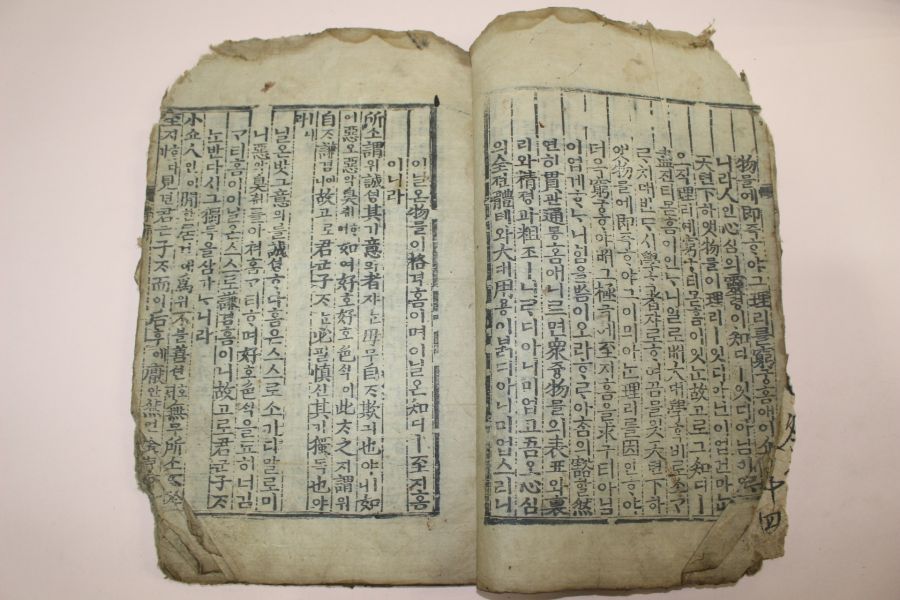 物믈에即즉ᄒᆞ야그理리를窮궁홈애이
니라人인心심의靈령이知디ㅣ잇디아님이업
天텬下하엣物믈이理리ㅣ잇디아닌이업건마ᄂᆞᆫ
오직理리예窮궁티몯홈이잇ᄂᆞᆫ故고로그知디ㅣ
盡진티몯홈이인ᄂᆞ니일로ᄡᅥ大대學ᄒᆞᆨ비로소ᄀᆞ
ᄅᆞ치매반ᄃᆞ시學ᄒᆞᆨ者쟈로ᄒᆞ여곰믈읫天텬下하
엣物믈에即즉ᄒᆞ야그이믜아ᄂᆞᆫ理리를因인ᄒᆞ야
더욱窮궁ᄒᆞ야ᄡᅥ그極극에至지홈을求구티아님
이업게ᄒᆞᄂᆞ니힘을ᄡᅳᆷ이오라ᄒᆞᄅᆞ아ᄎᆞᆷ의豁활然
연히貫관通통홈애니르면衆즁物믈의表표와裏
리와精졍과粗조ㅣ니르디아니미업고吾오心심
의全젼體톄와大대用용이ᄇᆞᆰ디아니미업스리니
이닐온物믈이格격홈이며이닐온知디ㅣ至지홈
이니라
所소謂위誠셩其기意의者쟈ᄂᆞᆫ毋무自ᄌᆞ欺긔也야ㅣ니如
여惡오惡악臭취ᄒᆞ며如여好호好호色ᄉᆡᆨ이此ᄎᆞ之지謂위
自ᄌᆞ謙겸이니故고로君군子ᄌᆞᄂᆞᆫ必필慎신其기獨독也야
ㅣ니라
닐온밧그意의를誠셩ᄒᆞ다홈은스스로소기디말로미
니惡악臭취를아쳐홈ᄀᆞ티ᄒᆞ며好호色ᄉᆡᆨ을됴히너김
ᄀᆞ티홈이이닐온스스로謙겸홈이니故고로君군子ᄌᆞ
ᄂᆞᆫ반ᄃᆞ시그獨독을삼가ᄂᆞ니라
小쇼人인이閒한居거에爲위不불善션호ᄃᆡ無무所소
至지ᄒᆞ다가見견君군子ᄌᆞ而이后후에厭안然연